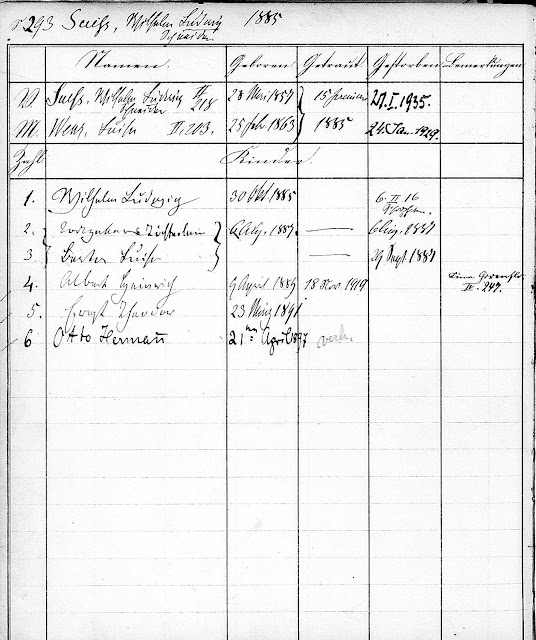 N. 293 Suchs, Wilhelm Ludwig 1885
Schneider
Namen. Geboren Getraut Gestorben Bemerkungen
V. Suchs, Wilhelm Ludwig II 218 28 Mai 1857 15 Januar 27. I. 1935.
Schneider
M. Wenz, Luise II. 203. 25 Febr 1863 1885 24. Jan. 1929.
Zahl Kinder.
1. Wilhelm Ludwig 30 Okt 1885 6. II 16
2. Totgeborenes Töchterlein 6 Aug. 1887. — 6 Aug. 1887
3. Bertha Luise — 29 Sept 1887
4. Albert Heinrich 9 April 1889 18 Nov 1919
III. 247.
5. Ernst Theodor 23 März 1891
6 Otto Hermañ 21ten April 1897 verh.